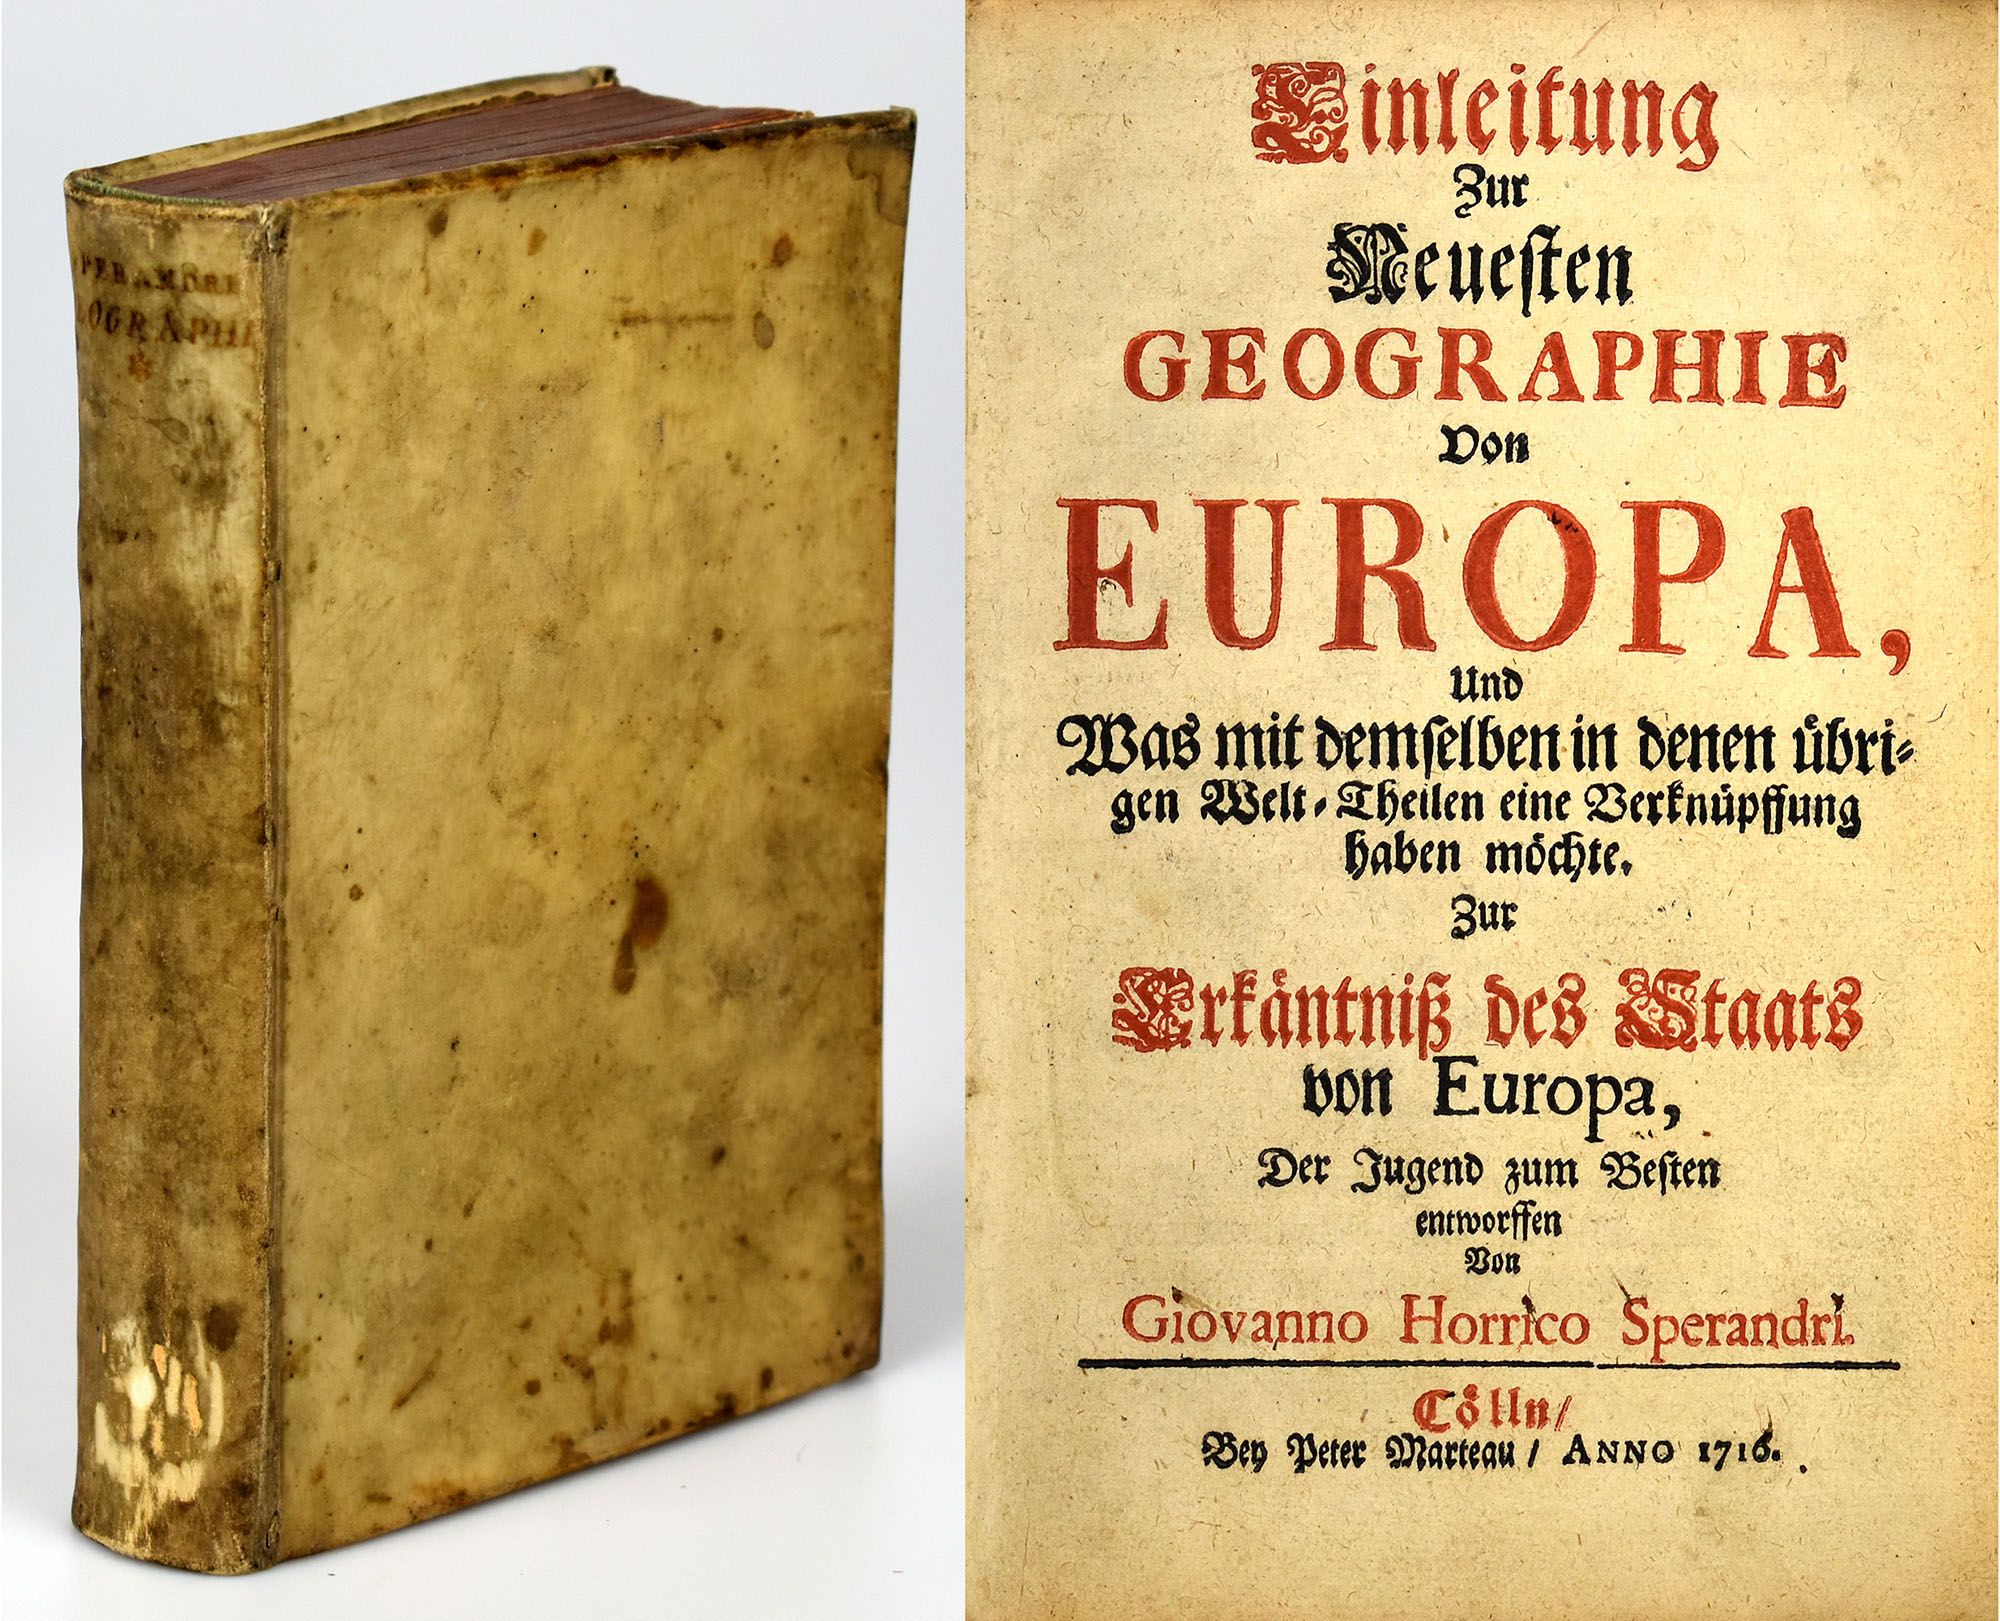 PERANDRI
OGRAPHI
Einleitung
Zur
Neuesten
GEOGRAPHIE
Von
EUROPA,
Und
Was mit demselben in denen übri-
gen Welt-Theilen eine Verknüpffung
haben möchte.
Zur
Erkäntniß des Staats
von Europa,
Der Jugend zum Besten
entworffen
Von
Giovanno Horrico Sperandri.
Cölln/
Bey Peter Marteau / ANNO 1716.